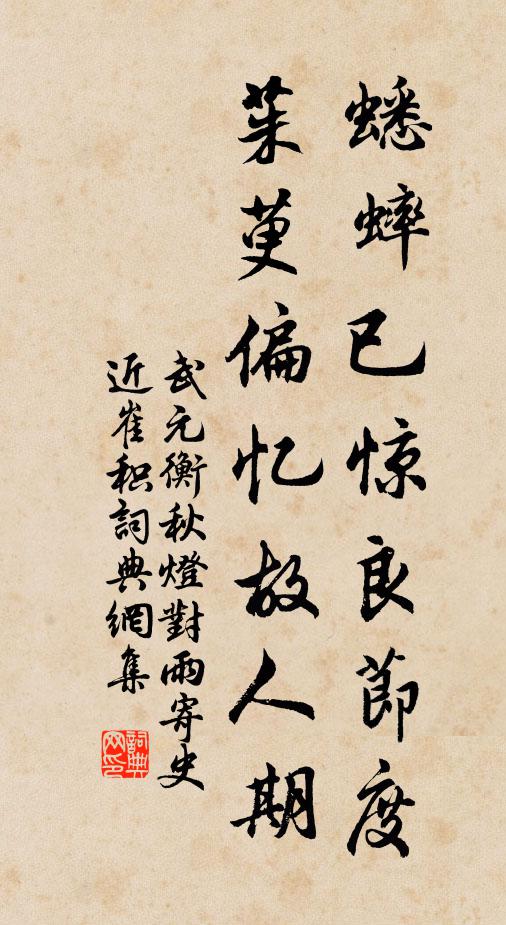 蟋蟀已惊良節度
茱萸偏忆故人期
武元衡秋燈對雨寄史
近崔积詞典網集
詞典网印